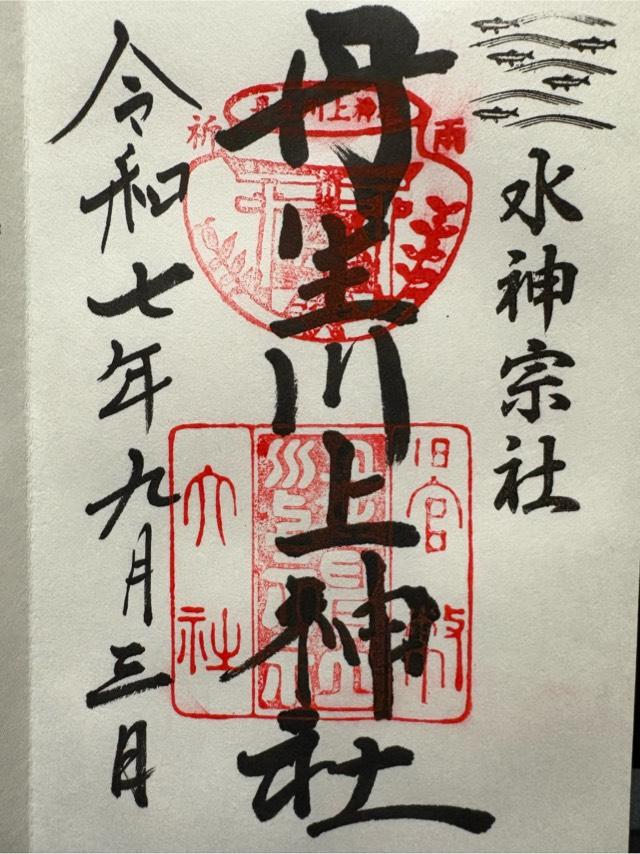 水神宗社
丹生川上神社
令和七年九月三日
祈
雨
川上神
旧官幣
大社